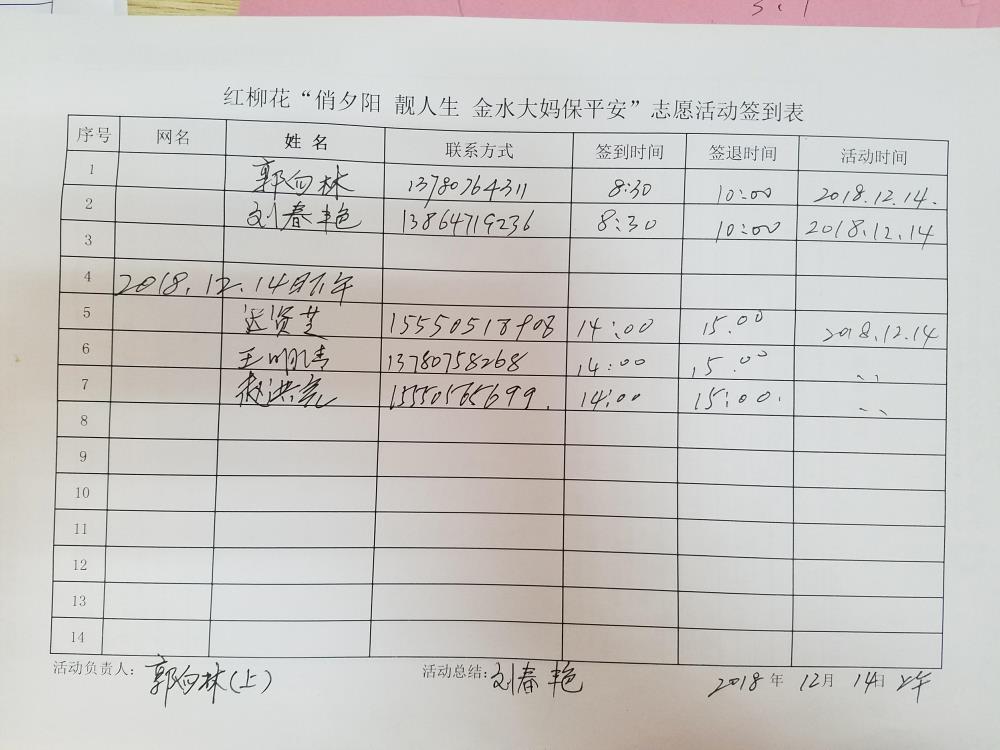 3.1
红柳花“俏夕阳 靓人生 金水大妈保平安”志愿活动签到表
序号 网名 姓名 联系方式 签到时间 签退时间 活动时间
1 郭向林 13780764311 8:30 10:00 2018.12.14.
2 刘春艳 13864719236 8:30 10:00 2018.12.14
3
4 2018.12.14日下午
5 15550517908 14:00 15.00 2018.12.14
6 王明清 13780758268 14:00 15.00 、、
7 赵洪亮 15550565699. 14:00 15:00. 、、
8
9
10
11
12
13
14
活动负责人: 郭向林(上) 活动总结: 刘春艳 2018年12月14日上午